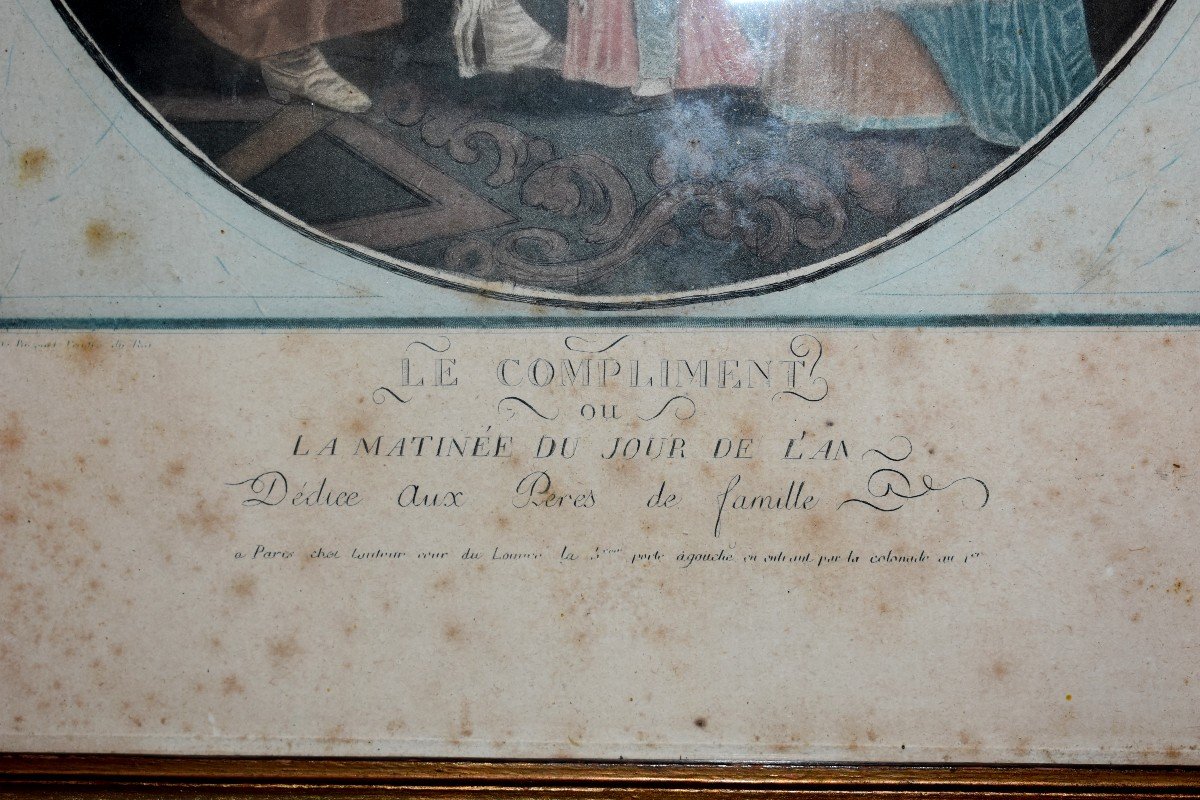 du Roi
LE COMPLIMENT
ou
LA MATINÉE DU JOUR DE L'AN
Dédiée aux Peres de famille
a Paris chez lauteur cour du Louvre la 3eme porte à gauche en entrant par la colonade au 1er